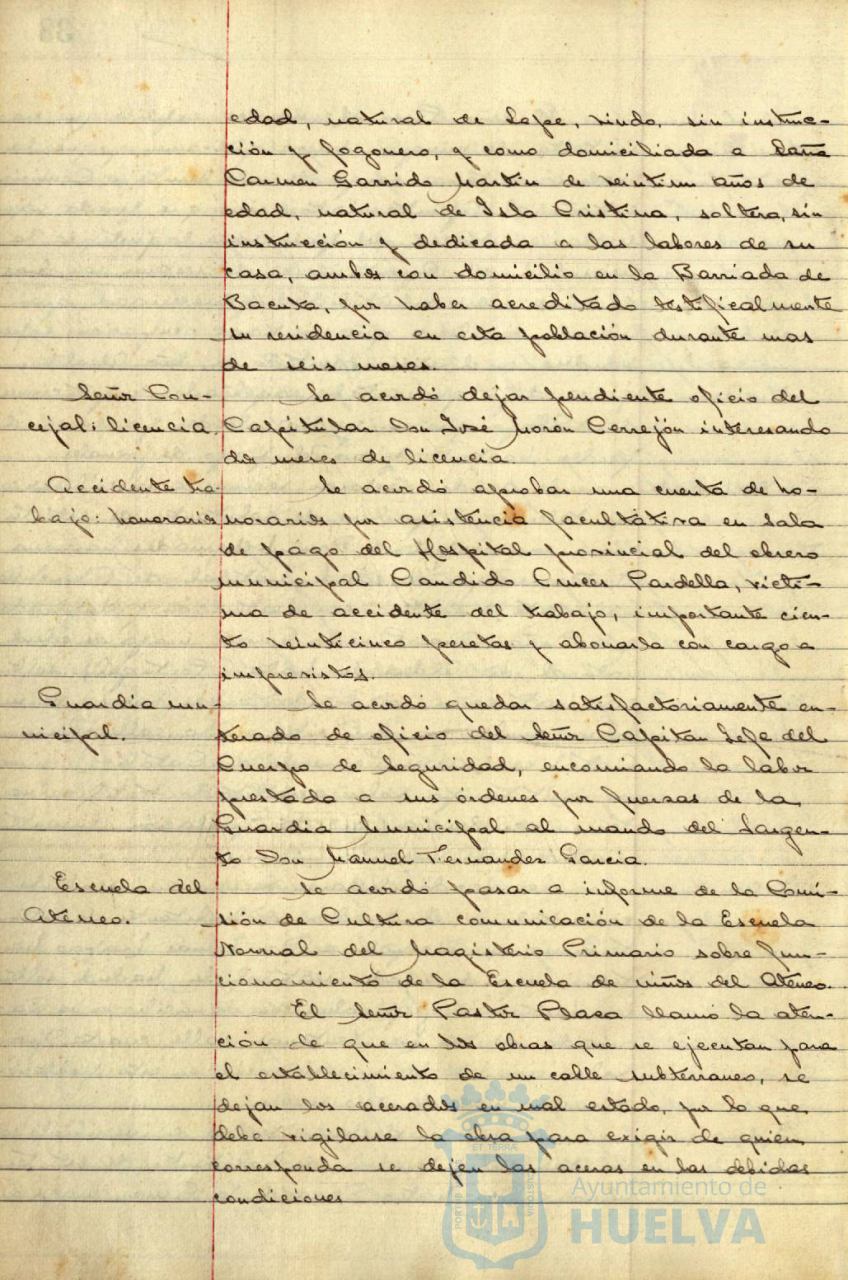 edad, natural de Lepe, viudo, sin instruc-
ción y fogonero, y como domiciliada a Doña
Carmen Garrido Martín de veintiun años de
edad, natural de Isla Cristina, soltera, sin
instrucción y dedicada a las labores de su
casa, ambos con domicilio en la Barriada de
Bacuta, por haber acreditado testificalmente
su residencia en esta población durante mas
de seis meses.
Señor Con-
cejal: licencia.
Se acordó dejar pendiente oficio del
Capitular Don José Morón Cerrejón interesando
dos meses de licencia.
Accidente tra-
bajo: honorarios
Se acordó aprobar una cuenta de ho-
norarios por asistencia facultativa en sala
de pago del Hospital provincial del obrero
municipal Candido Cruces Pardella, vícti-
ma de accidente del trabajo, importante cien-
to veinticinco pesetas y abonarla con cargo a
imprevistos.
Guardia mu-
nicipal.
Se acordó quedar satisfactoriamente en-
terado de oficio del Señor Capitan Jefe del
Cuerpo de Seguridad, encomiando la labor
prestada a sus órdenes por fuerzas de la
Guardia Municipal al mando del Sargen-
to Don Manuel Fernandez Garcia.
Escuela del
Ateneo.
Se acordó pasar a informe de la Comi-
sión de Cultura comunicación de la Escuela
Normal del Magisterio Primario sobre fun-
cionamiento de la Escuela de niños del Ateneo.
El Señor Pastor Plaza llamó la aten-
ción de que en las obras que se ejecutan para
el establecimiento de un cable subterraneo, se
dejan los acerados en mal estado, por lo que
debe vigilarse la obra para exigir de quien
corresponda se dejen las aceras en las debidas
condiciones
Ayuntamiento de
HUELVA